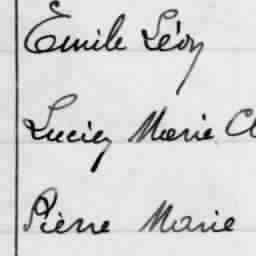 Emile Lévy
Lucien Marie
Pierre Marie